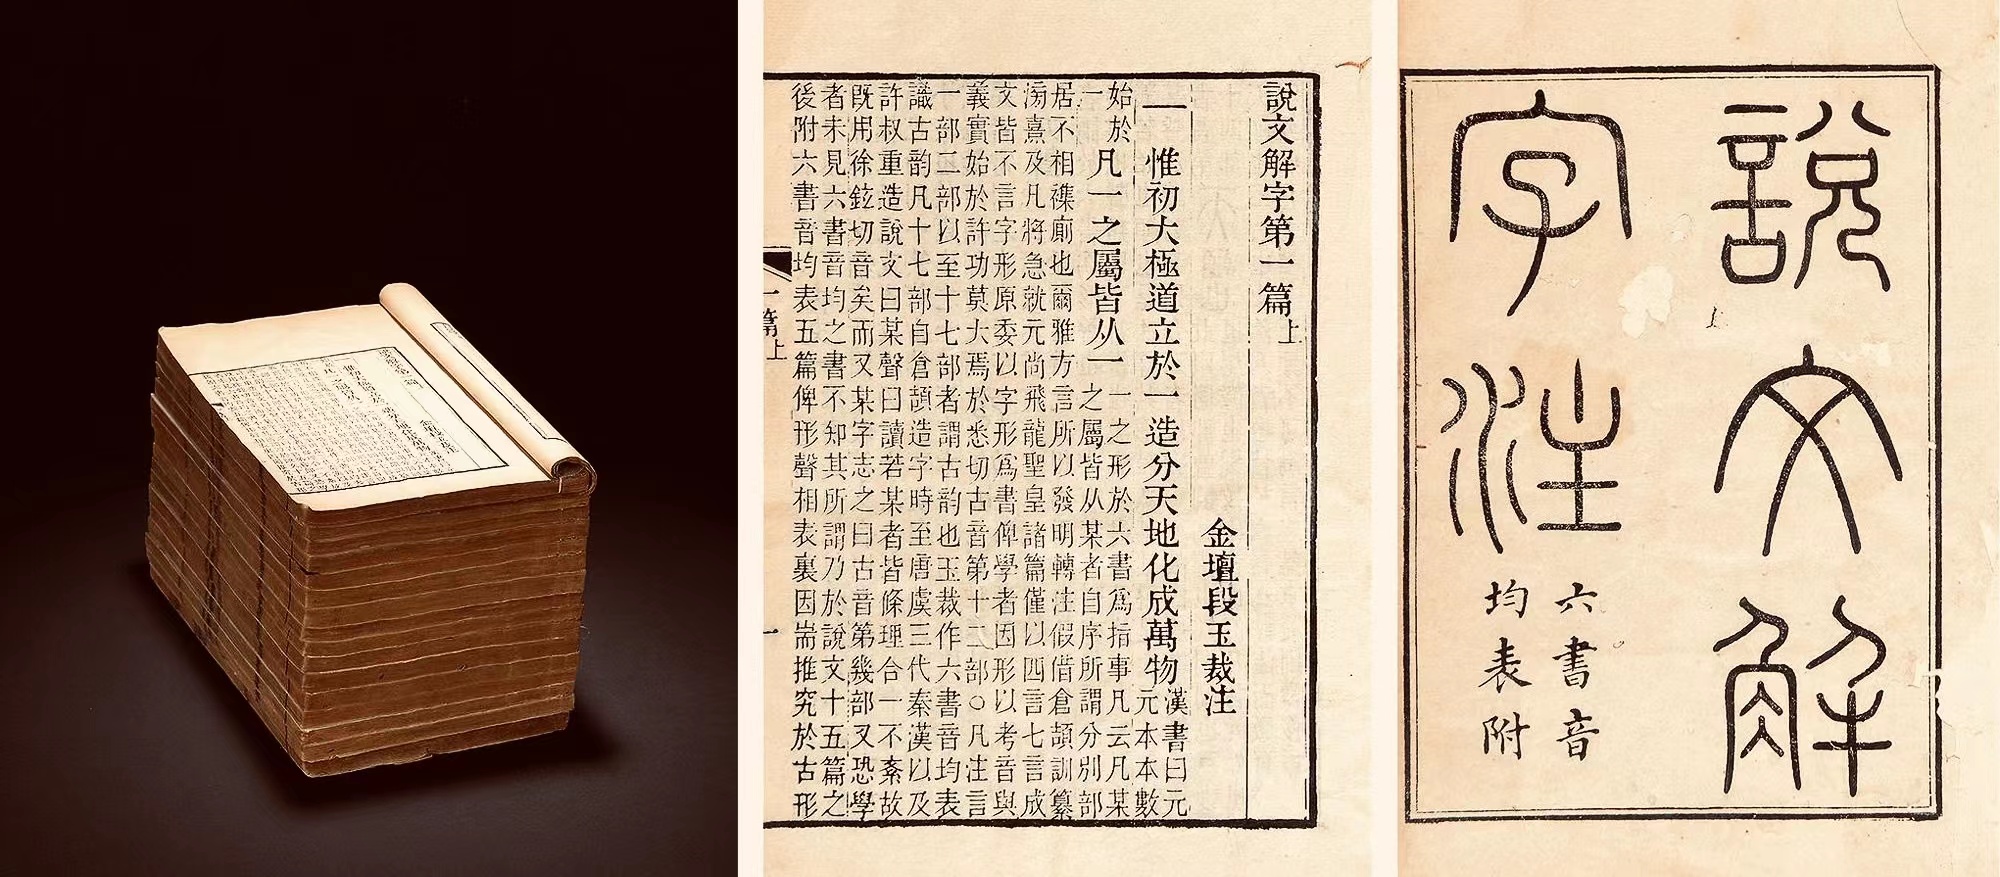 說文解
字注
六書音
均表附
說文解字第一篇上
金壇段玉裁注
一
惟初大極道立於一造分天地化成萬物
漢書曰元
元本本數
始於
一
凡一之屬皆从一
一之形於六書爲指事凡云凡某
之屬皆从某者自序所謂分別部
居不相襍廁也爾雅方言所以發明轉注假借倉頡訓纂
滂熹及凡將急就元尚飛龍聖皇諸篇僅以四言七言成
文皆不言字形原委以字形爲書俾學者因形以考音與
義實始於許功莫大焉於悉切古音第十二部○凡注言
一部二部以至十七部者謂古韵也玉裁作六書音均表
識古韵凡十七部自倉頡造字時至唐虞三代秦漢以及
許叔重造說文曰某聲曰讀若某者皆條理合一不紊故
既用徐鉉切音矣而又某字志之曰古音第幾部又恐學
者未見六書音均之書不知其所謂乃於說文十五篇之
後附六書音均表五篇俾形聲相表裏因耑推究於古形
一篇上
一